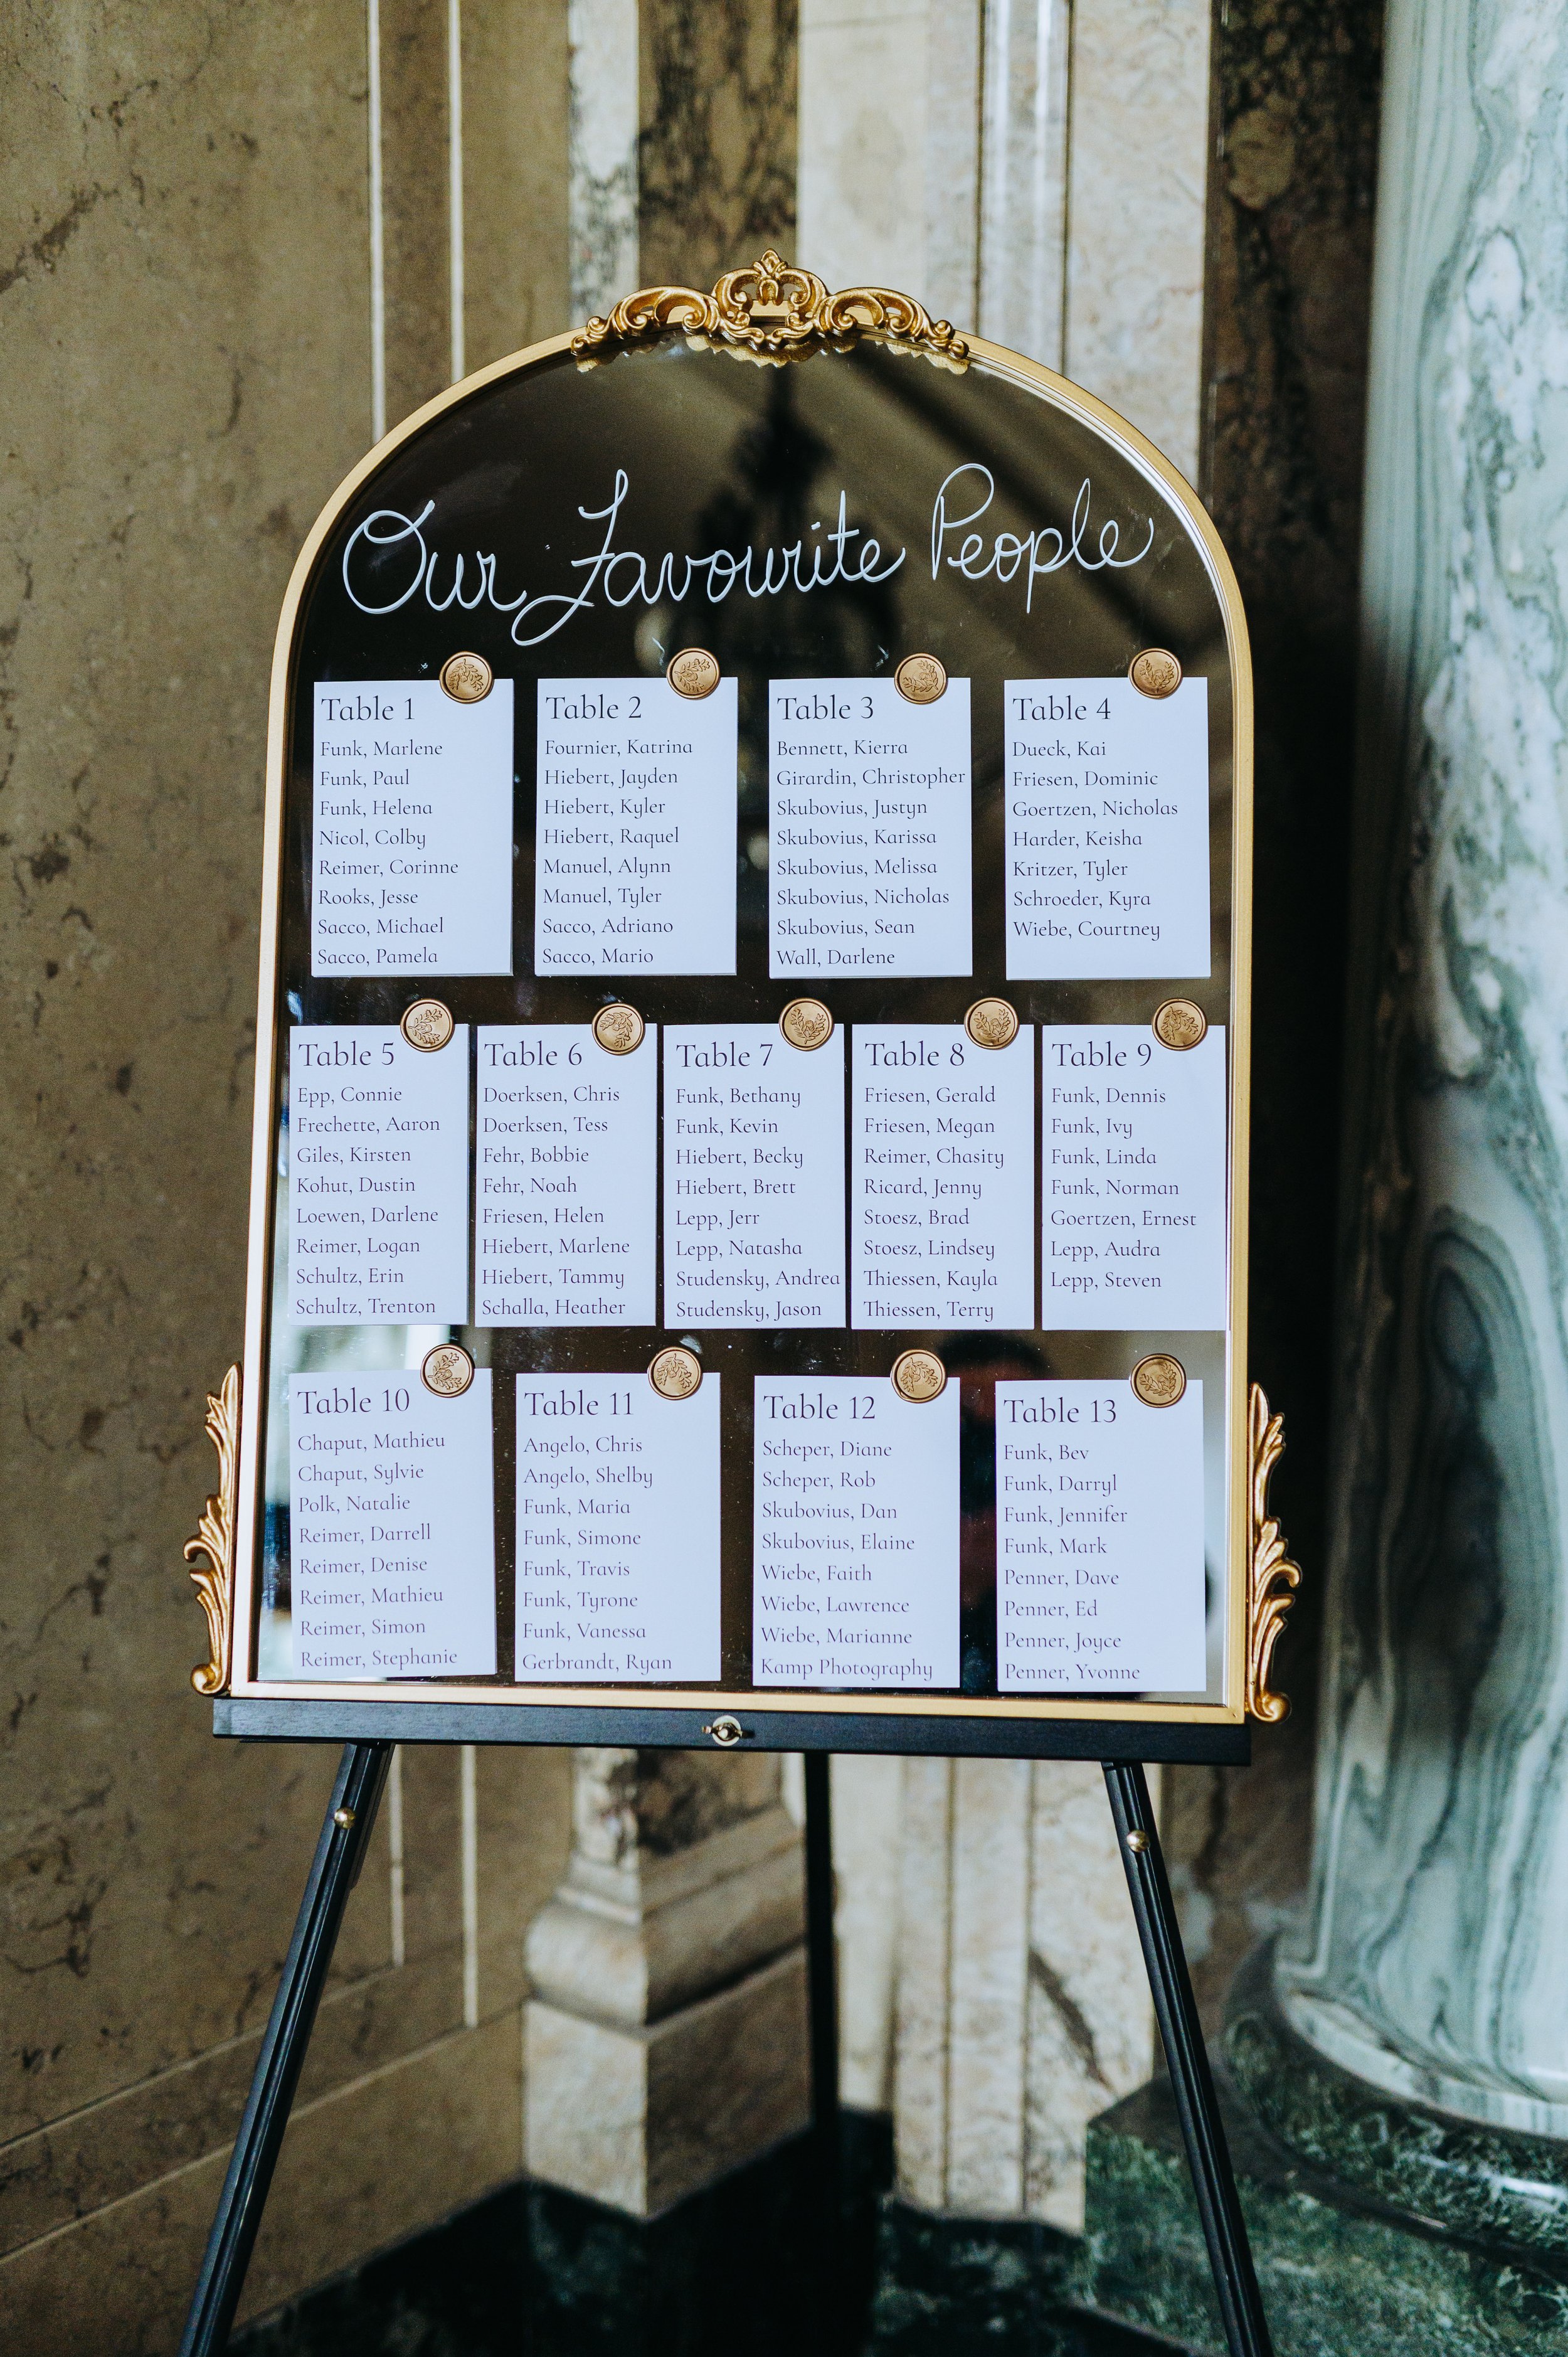 Our Favourite People
Table 1
Funk, Marlene
Funk, Paul
Funk, Helena
Nicol, Colby
Reimer, Corinne
Rooks, Jesse
Sacco, Michael
Sacco, Pamela
Table 2
Fournier, Katrina
Hiebert, Jayden
Hiebert, Kyler
Hiebert, Raquel
Manuel, Alynn
Manuel, Tyler
Sacco, Adriano
Sacco, Mario
Table 3
Bennett, Kierra
Girardin, Christopher
Skubovius, Justyn
Skubovius, Karissa
Skubovius, Melissa
Skubovius, Nicholas
Skubovius, Sean
Wall, Darlene
Table 4
Dueck, Kai
Friesen, Dominic
Goertzen, Nicholas
Harder, Keisha
Kritzer, Tyler
Schroeder, Kyra
Wiebe, Courtney
Table 5
Epp, Connie
Frechette, Aaron
Giles, Kirsten
Kohut, Dustin
Loewen, Darlene
Reimer, Logan
Schultz, Erin
Schultz, Trenton
Table 6
Doerksen, Chris
Doerksen, Tess
Fehr, Bobbie
Fehr, Noah
Friesen, Helen
Hiebert, Marlene
Hiebert, Tammy
Schalla, Heather
Table 7
Funk, Bethany
Funk, Kevin
Hiebert, Becky
Hiebert, Brett
Lepp, Jerr
Lepp, Natasha
Studensky, Andrea
Studensky, Jason
Table 8
Friesen, Gerald
Friesen, Megan
Reimer, Chasity
Ricard, Jenny
Stoesz, Brad
Stoesz, Lindsey
Thiessen, Kayla
Thiessen, Terry
Table 9
Funk, Dennis
Funk, Ivy
Funk, Linda
Funk, Norman
Goertzen, Ernest
Lepp, Audra
Lepp, Steven
Table 10
Chaput, Mathieu
Chaput, Sylvie
Polk, Natalie
Reimer, Darrell
Reimer, Denise
Reimer, Mathieu
Reimer, Simon
Reimer, Stephanie
Table 11
Angelo, Chris
Angelo, Shelby
Funk, Maria
Funk, Simone
Funk, Travis
Funk, Tyrone
Funk, Vanessa
Gerbrandt, Ryan
Table 12
Scheper, Diane
Scheper, Rob
Skubovius, Dan
Skubovius, Elaine
Wiebe, Faith
Wiebe, Lawrence
Wiebe, Marianne
Kamp Photography
Table 13
Funk, Bev
Funk, Darryl
Funk, Jennifer
Funk, Mark
Penner, Dave
Penner, Ed
Penner, Joyce
Penner, Yvonne